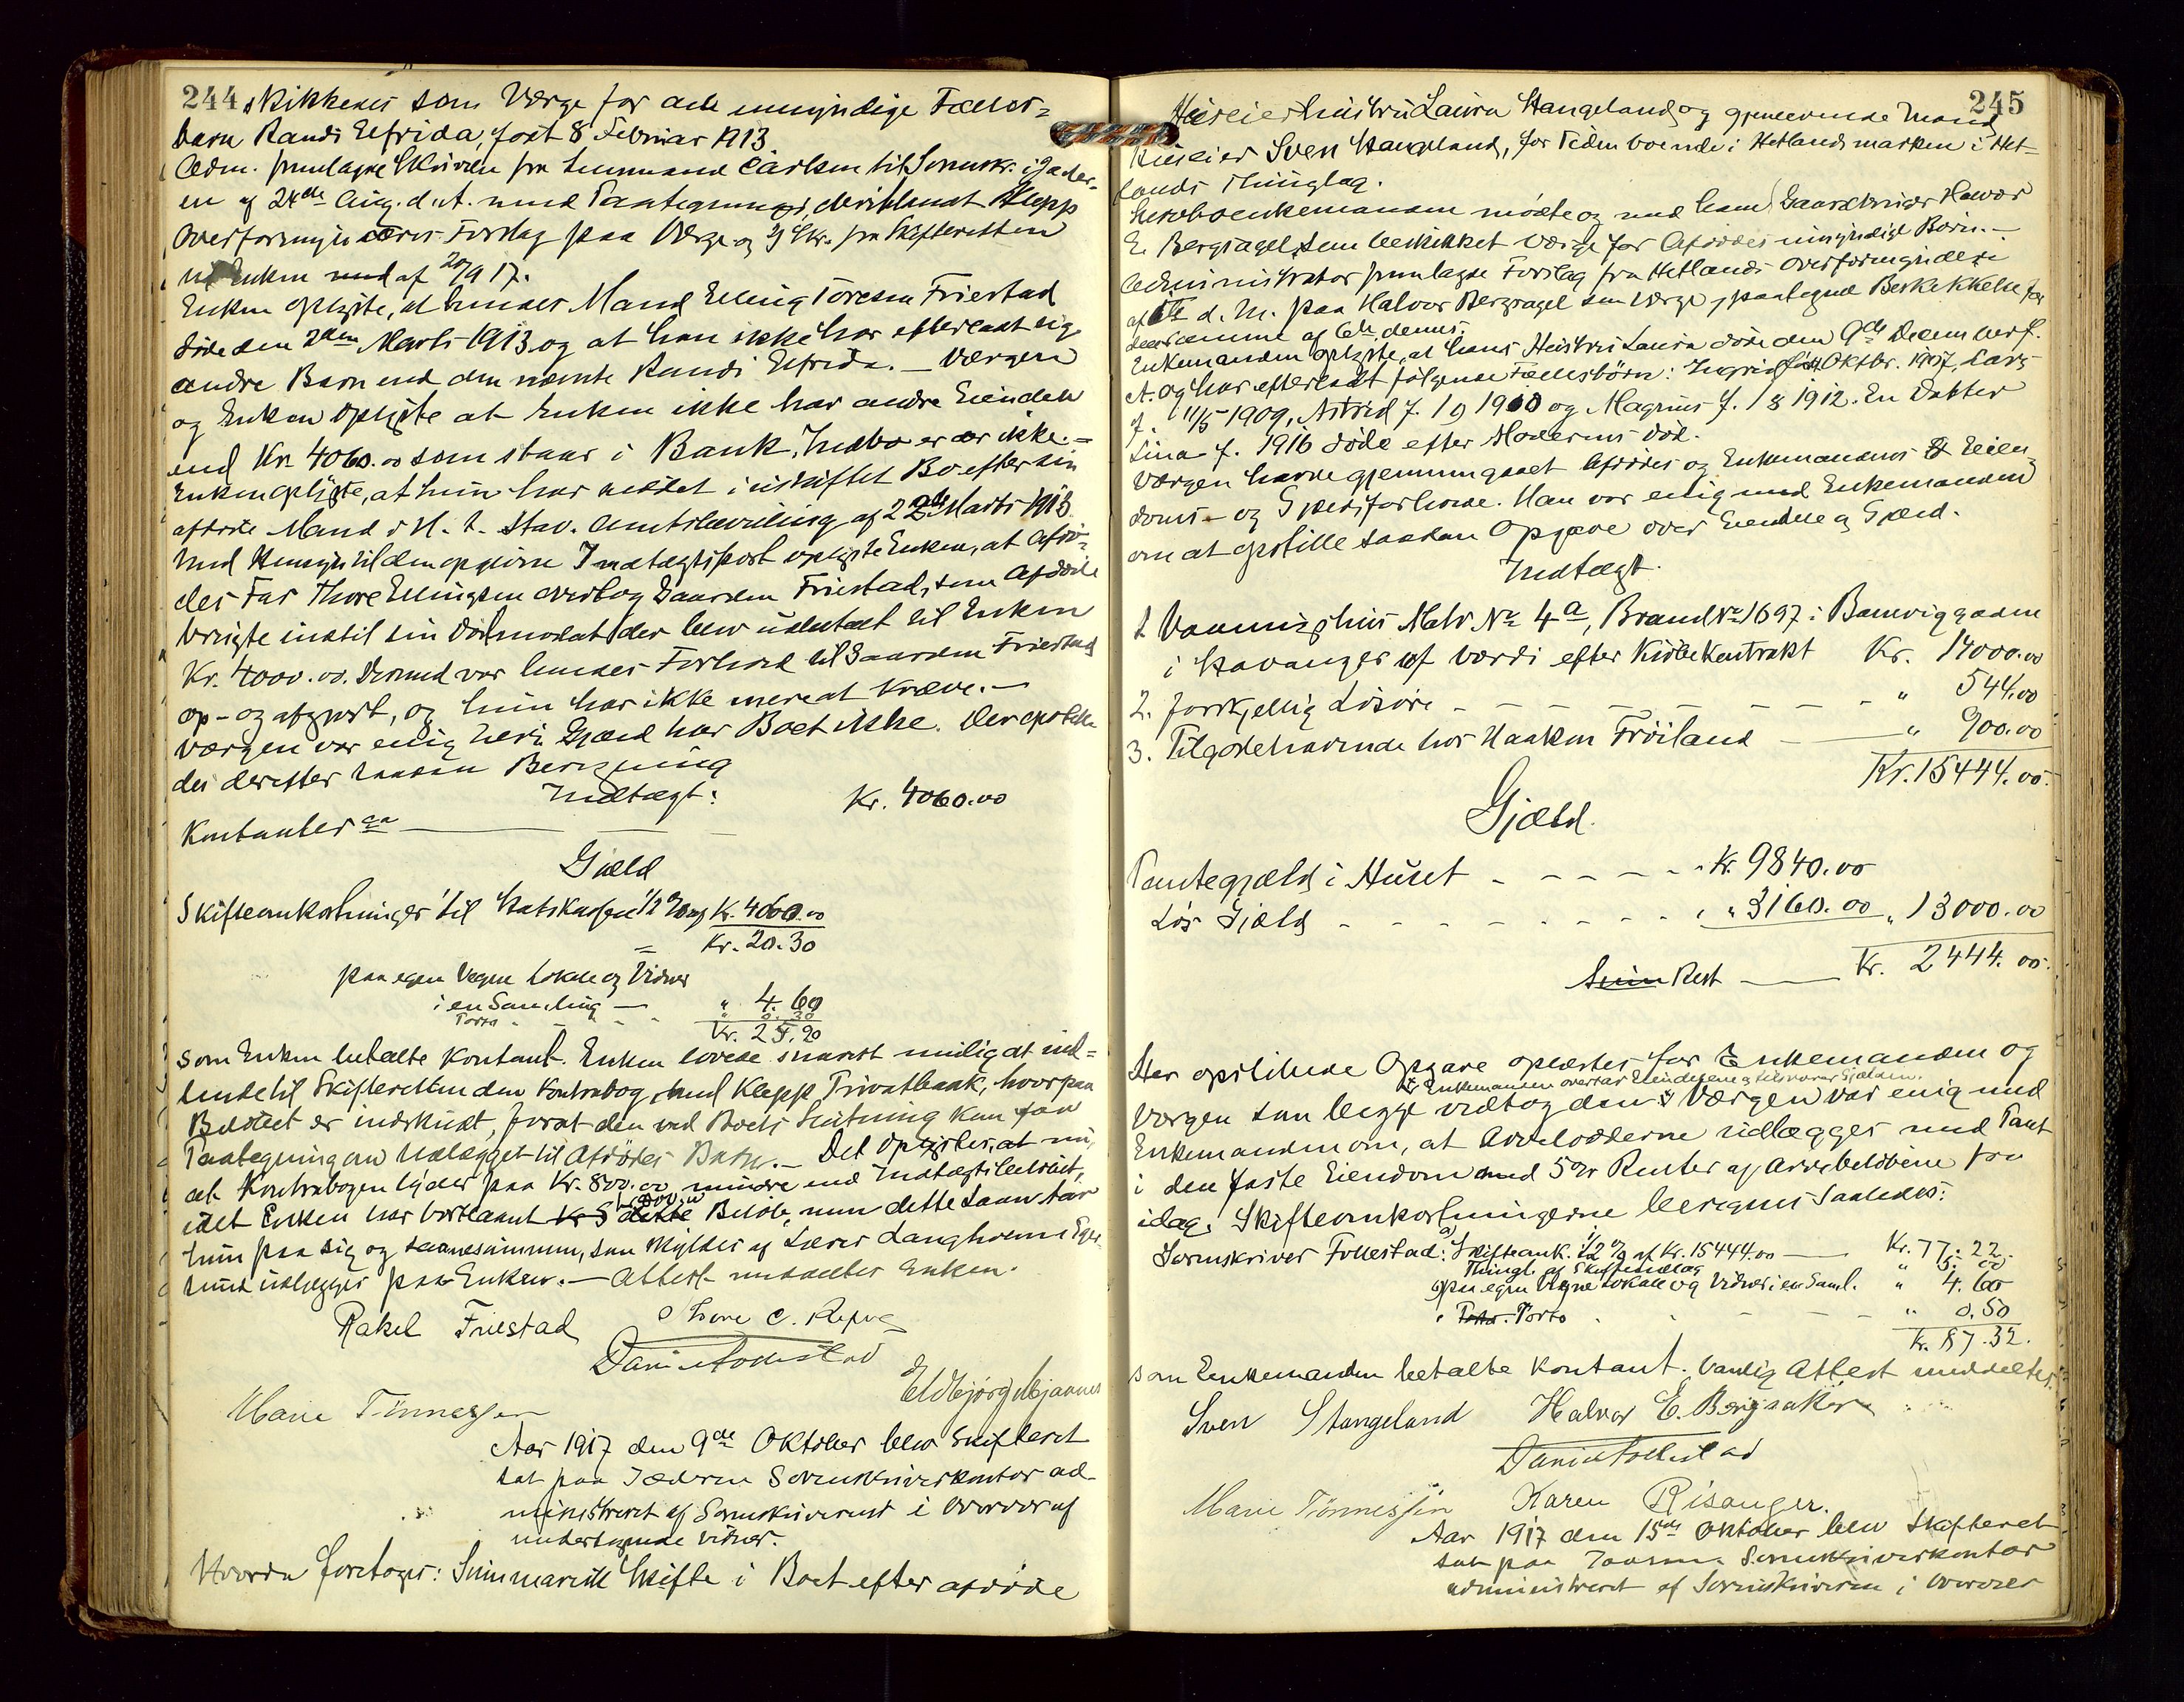 244
skikkedes som Værge for det umyndige Fælles-
barn Randi Elfrida, født 8 Februar 1913
Adm. fremlagde Skrivelse fra Lensmand Carlsen til Sorenskr. i Jæder-
en af 24de Aug. d. A. med Paategning, deriblandt Klepp
Overformynderes Forslag paa Værge og Skr. fra Skifteretten
til Enken af 20/9 17.
Enken oplyste, at hendes Mand Elling Toresen Friestad
døde den 2den Marts 1913 og at han ikke har efterladt sig
andre Barn end den nævnte Randi Elfrida. — Værgen
og Enken oplyste at Enken ikke har andre Eiendele
end Kr. 4060.00 som staar i Bank, Indbo er der ikke. —
Enken oplyste, at hun har siddet i uskiftet Bo efter sin
afdøde Mand i H. t. Stav. Amtsbevilling af 22de Marts 1913.
Med Hensyn til den opgivne Indtægtspost oplyste Enken, at Afdø-
des Far Thore Ellingsen overtog Gaarden Friestad, som Afdøde
brugte indtil sin Død mod at der blev udbetalt til Enken
Kr. 4000.00. Dermed var hendes Forhold til Gaarden Friestad
op- og afgjort, og hun har ikke mere at kræve. —
Værgen var enig heri. Gjæld har Boet ikke. Der opstille-
des derefter saadan Beregning
Indtægt:
Kontanter — Kr. 4060.00
Gjæld
Skifteomkostninger til Statskassen 1/2 % af Kr. 4060.00
= Kr. 20.30
paa egne Vegne Lokale og Vidner
i en Samling — " 4.60
Porto - - - " 0.30
Kr. 25.20
som Enken betalte kontant. Enken lovede snarest mulig at ind-
sende til Skifteretten den Kontrabog med Klepp Privatbank, hvorpaa
Beløbet er indskudt, forat den ved Boets Slutning kan faa
Paategning om Udlægget til Afdødes Barn. — Det oplystes, at nu-
at Kontrabogen lyder paa Kr. 800.00 mindre end Indtægtsbeløbet,
idet Enken har bortlaant dette Beløb, men dette Laan tar
hun paa sig og samme summen, som skyldes af Lærer Langholm i Eger-
sund udlægges paa Enken. — Attest meddeltes Enken.
Rakel Friestad
Thore C. Repva
Daniel Follestad
Marie Tønnessen
Eldbjørg Mjaanes
Aar 1917 den 9de Oktober blev Skifteret
sat paa Jæderen Sorenskriverkontor ad-
ministreret af Sorenskriveren i Overvær af
undertegnede Vidner.
Hvorda foretoges: Summarisk Skifte i Boet efter afdøde
245
Huseier hustru Laura Stangeland og gjenlevende Mand
Huseier Sven Stangeland, for Tiden boende i Hetlandsmarken i Het-
lands Thinglag.
Enkemanden mødte og med ham Gaardbruger Halvor
E. Bergsagel som beskikket Værge for Afdødes umyndige Børn. —
Administrator fremlagde Forslag fra Hetlands Overformynderi
af 6te d. M. paa Halvor Bergsagel som Værge, paategnet Beskikkelse for
densamme af 6te dennes.
Enkemanden oplyste, at hans Hustru Laura døde den 9de Decem ber f.
A. og har efterladt følgende Fællesbørn: Ingrid født Oktbr. 1907, Lars
f. 11/5 1909, Astrid f. 1/9 1910 og Magnus f. 1/8 1912. En Datter
Lina f. 1916 døde efter Moderens Død.
Værgen havde gjennemgaaet Afdødes og Enkemandens Eien-
doms- og Gjældsforhold. Han var enig med Enkemanden
om at opstille saadan Opgave over Eiendele og Gjæld.
Indtægt.
1 Vaaningshus Matr No 4a, Brand No 1697 i Baneviggaden
i Stavanger af Værdi efter Kjøbekontrakt Kr. 14000.00
2. Forskjellig Løsøre - - - - - - " 544.00
3. Tilgodehavende hos Haakon Frøiland — " 900.00
Kr. 15444.00
Gjæld.
Pantegjæld i Huset - - - - - Kr. 9840.00
Løs Gjæld - - - - - - - " 3160.00 " 13000.00
Sum Rest — Kr. 2444.00
Den opstillede Opgave oplæstes for Enkemanden og
Enkemanden overtar Eiendelene og tilsvarer Gjælden.
Værgen som begge vedtog den. Værgen var enig med
Enkemanden om, at Arvelodderne udlægges med Pant
i den faste Eiendom med 5 % Renter af Arvebeløbene fra
idag. Skifteomkostningerne beregnes saaledes:
Sorenskriver Follestad: a) Skifteomk. 1/2 % af Kr. 15444.00 — Kr. 77.22
Thingl. af Skifteudlæg " 5.00
paa egne Vegne Lokale og Vidner i en Saml. " 4.60
Porto - - - " 0.50
Kr. 87.32.
som Enkemanden betalte kontant. Vanlig Attest meddeltes.
Sven Stangeland
Halvor E. Bergsaker
Daniel Follestad
Marie Tønnessen
Karen Risanger.
Aar 1917 den 15de Oktober blev Skifteret
sat paa Jæderen Sorenskriverkontor
administreret af Sorenskriveren i Overvær